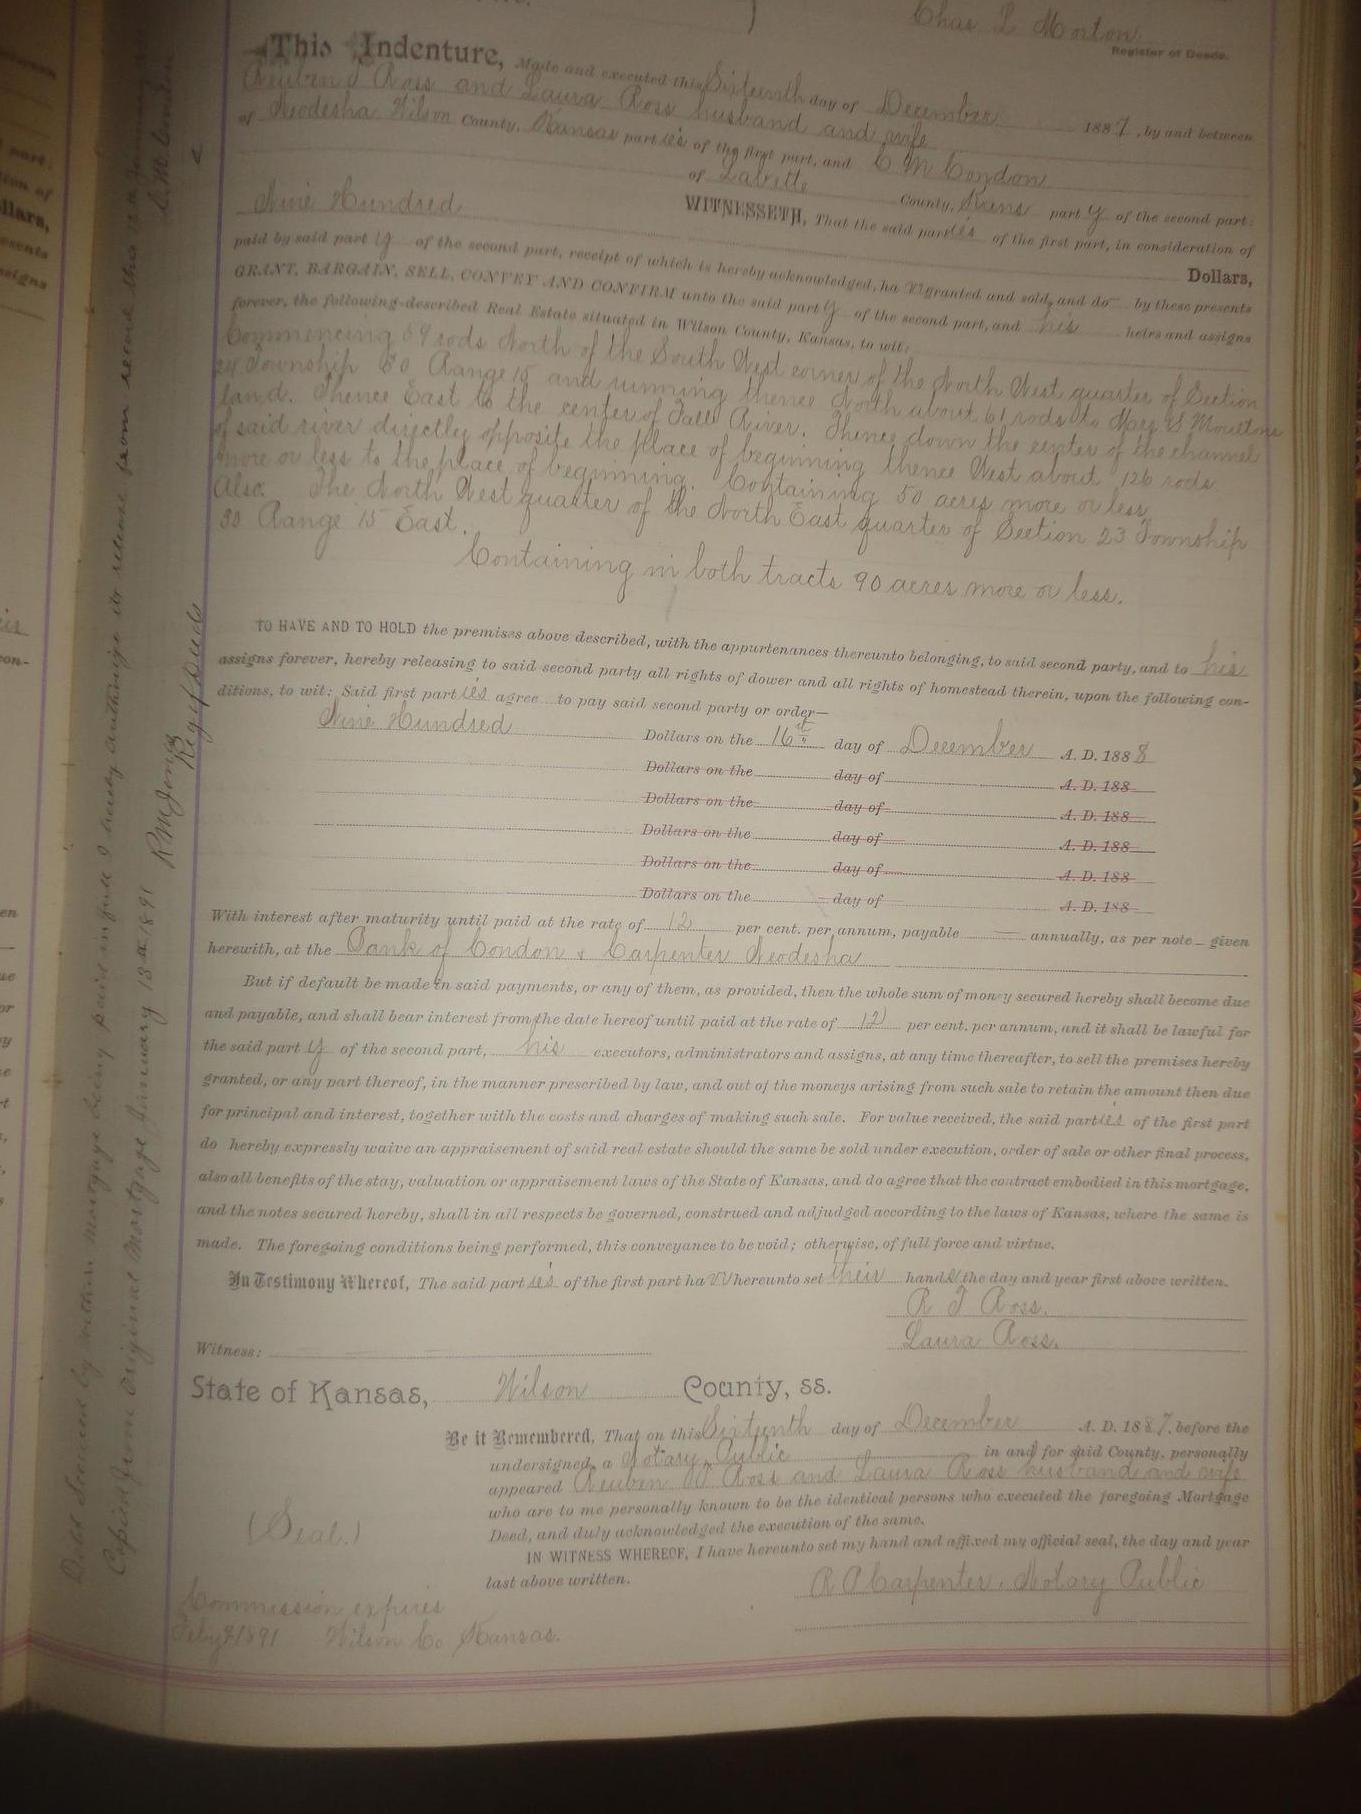 Chas L Morton
Register of Deeds.
This Indenture, Made and executed this Sixteenth day of December 1887, by and between
Reuben J Ross and Laura Ross husband and wife
of Neodesha Wilson County, Kansas parties of the first part, and C M Condon
of Labette County, Kans party of the second part:
WITNESSETH, That the said parties of the first part, in consideration of
Nine Hundred Dollars,
paid by said party of the second part, receipt of which is hereby acknowledged, have granted and sold, and do by these presents
GRANT, BARGAIN, SELL, CONVEY AND CONFIRM unto the said party of the second part, and his heirs and assigns
forever, the following-described Real Estate situated in Wilson County, Kansas, to wit:
Commencing 59 rods North of the South West corner of the North West quarter of Section
24 Township 30 Range 15 and running thence North about 61 rods to May S Moultons
land. Thence East to the center of Fall River. Thence down the center of the channel
of said river directly opposite the place of beginning thence West about 126 rods
more or less to the place of beginning. Containing 50 acres more or less
Also. The North West quarter of the North East quarter of Section 23 Township
30 Range 15 East.
Containing in both tracts 90 acres more or less.
TO HAVE AND TO HOLD the premises above described, with the appurtenances thereunto belonging, to said second party, and to his
assigns forever, hereby releasing to said second party all rights of dower and all rights of homestead therein, upon the following con-
ditions, to wit: Said first parties agree to pay said second party or order—
Nine Hundred Dollars on the 16th day of December A. D. 1888
Dollars on the day of A. D. 188
Dollars on the day of A. D. 188
Dollars on the day of A. D. 188
Dollars on the day of A. D. 188
Dollars on the day of A. D. 188
With interest after maturity until paid at the rate of 12 per cent. per annum, payable — annually, as per note given
herewith, at the Bank of Condon & Carpenter Neodesha
But if default be made in said payments, or any of them, as provided, then the whole sum of money secured hereby shall become due
and payable, and shall bear interest from the date hereof until paid at the rate of 12 per cent. per annum, and it shall be lawful for
the said party of the second part, his executors, administrators and assigns, at any time thereafter, to sell the premises hereby
granted, or any part thereof, in the manner prescribed by law, and out of the moneys arising from such sale to retain the amount then due
for principal and interest, together with the costs and charges of making such sale. For value received, the said parties of the first part
do hereby expressly waive an appraisement of said real estate should the same be sold under execution, order of sale or other final process,
also all benefits of the stay, valuation or appraisement laws of the State of Kansas, and do agree that the contract embodied in this mortgage,
and the notes secured hereby, shall in all respects be governed, construed and adjudged according to the laws of Kansas, where the same is
made. The foregoing conditions being performed, this conveyance to be void; otherwise, of full force and virtue.
In Testimony Whereof, The said parties of the first part have hereunto set their hands the day and year first above written.
R J Ross.
Laura Ross.
Witness:
State of Kansas, Wilson County, ss.
Be it Remembered, That on this Sixteenth day of December A. D. 1887, before the
undersigned, a Notary Public in and for said County, personally
appeared Reuben J Ross and Laura Ross husband and wife
who are to me personally known to be the identical persons who executed the foregoing Mortgage
Deed, and duly acknowledged the execution of the same.
IN WITNESS WHEREOF, I have hereunto set my hand and affixed my official seal, the day and year
last above written.
(Seal.)
R P Carpenter. Notary Public
Commission expires
Feby 2 1891 Wilson Co Kansas.
Debt Secured by within mortgage being paid in full I hereby authorize its release from record this
C. M. Condon
Copied from Original Mortgage January 13th 1891 RM Jones
Reg of Deeds